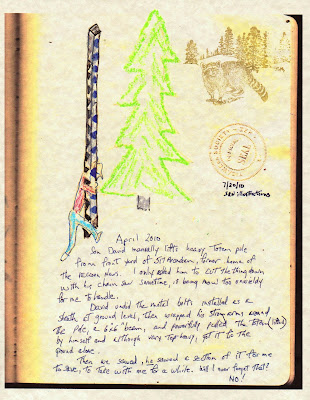 7/20/10
April 2010
Son David manually lifts heavy totem pole
from front yard of 517 Arcadian, former home of
the raccoon news. I only asked him to cut the thing down,
with his chain saw sometime, it being now too unwieldy
for me to handle.
David undid the metal bolts installed as a
sheath at ground level, then wrapped his strong arms around
the pole, a 6x6" beam, and powerfully pulled the totem
by himself and although very top heavy, get it to the
ground alone.
Then we sawed, he sawed a section of it for me
to save, to take with me for a while. Will I ever forget that?
NO!